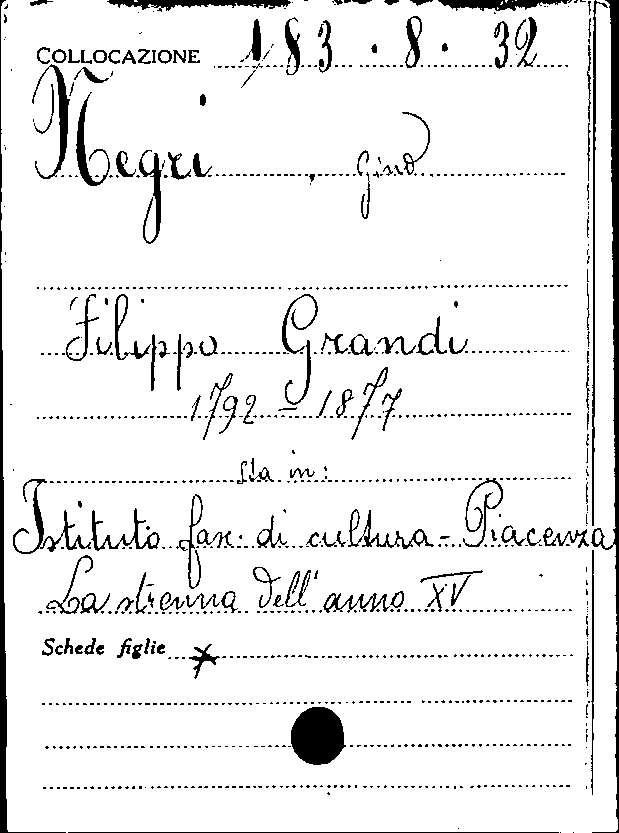 COLLOCAZIONE 183 . 8 . 32
Negri , Gino
Filippo Grandi
1792 - 1877
sta in:
Istituto fasc. di cultura - Piacenza
La strenna dell'anno XV
Schede figlie